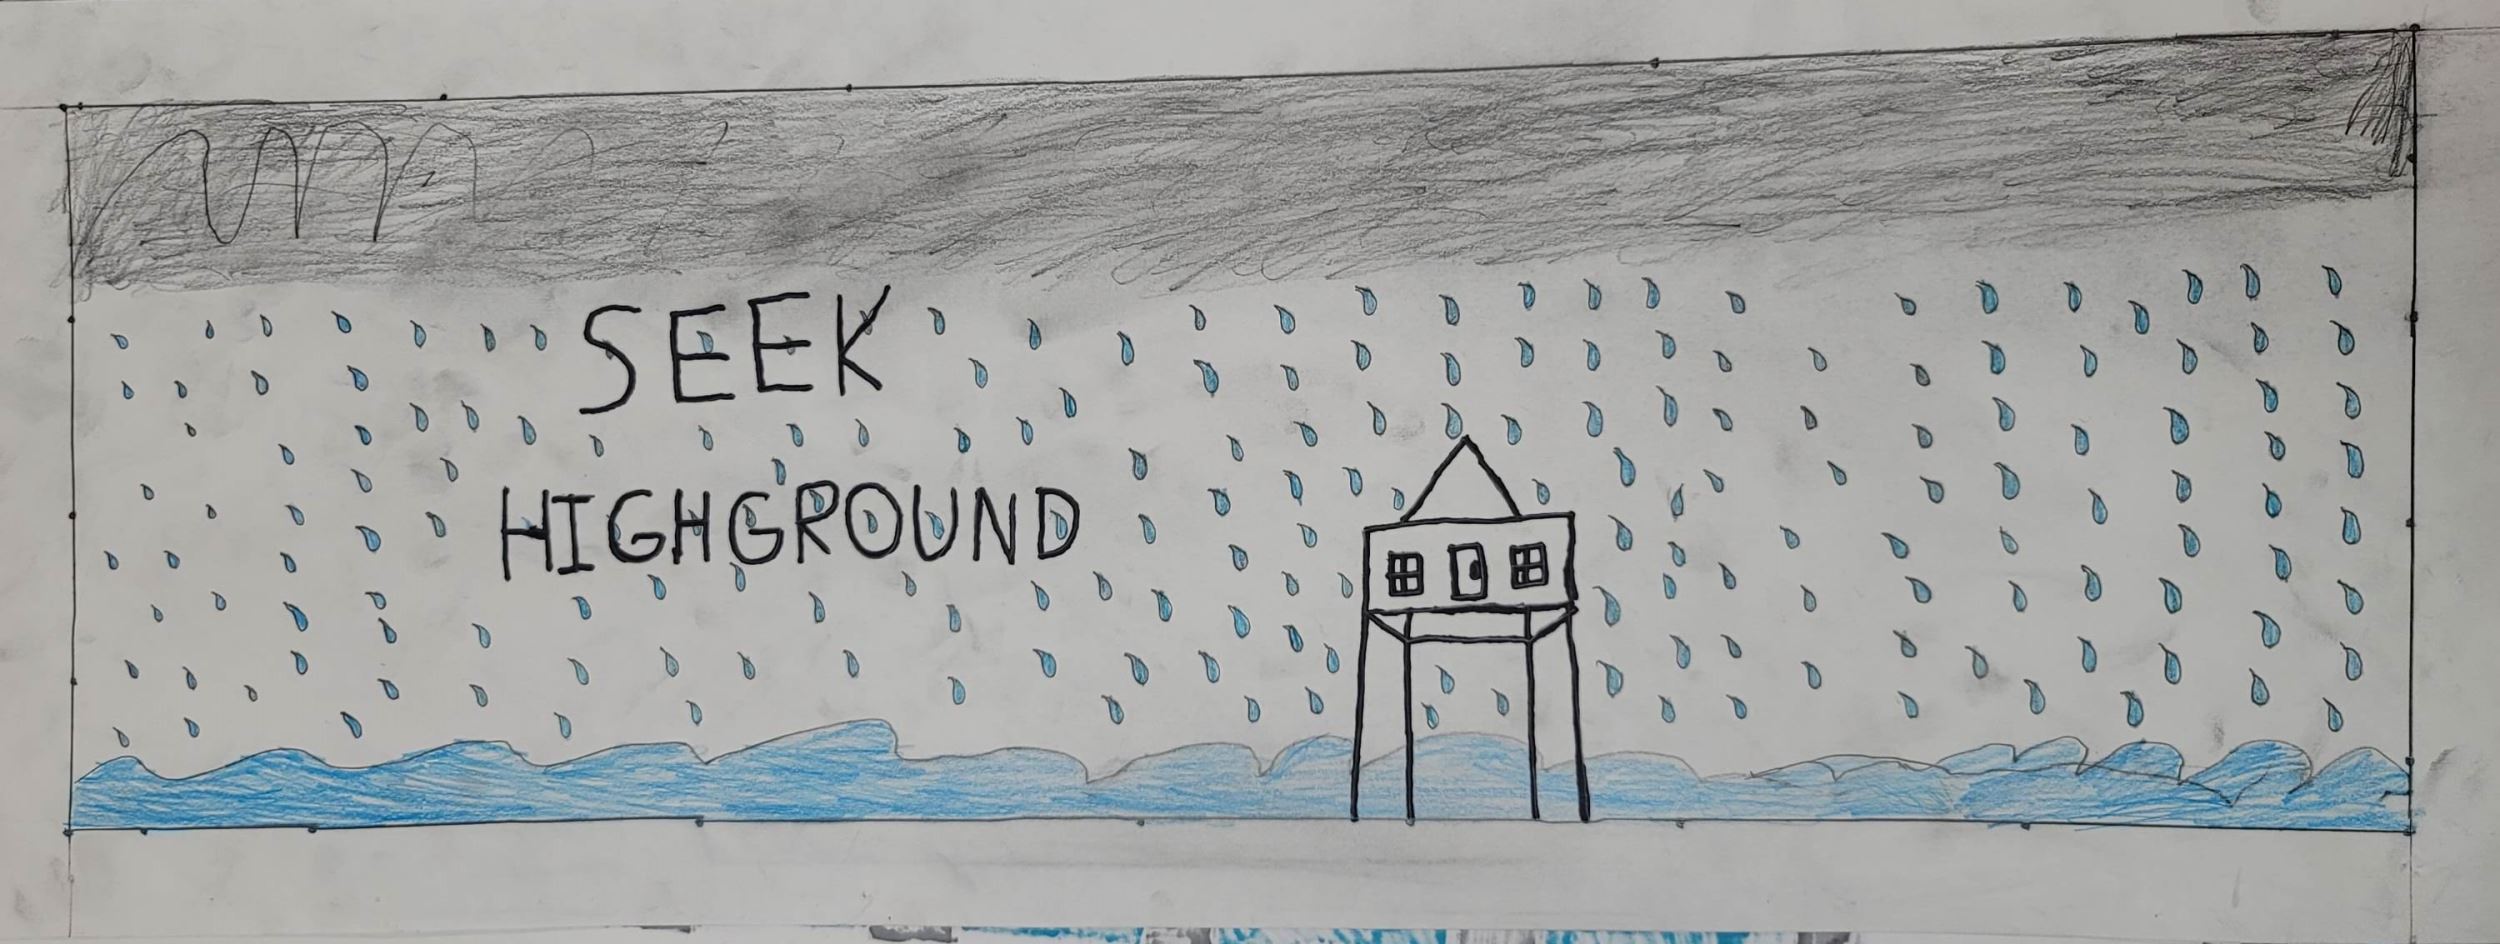 SEEK
HIGHGROUND